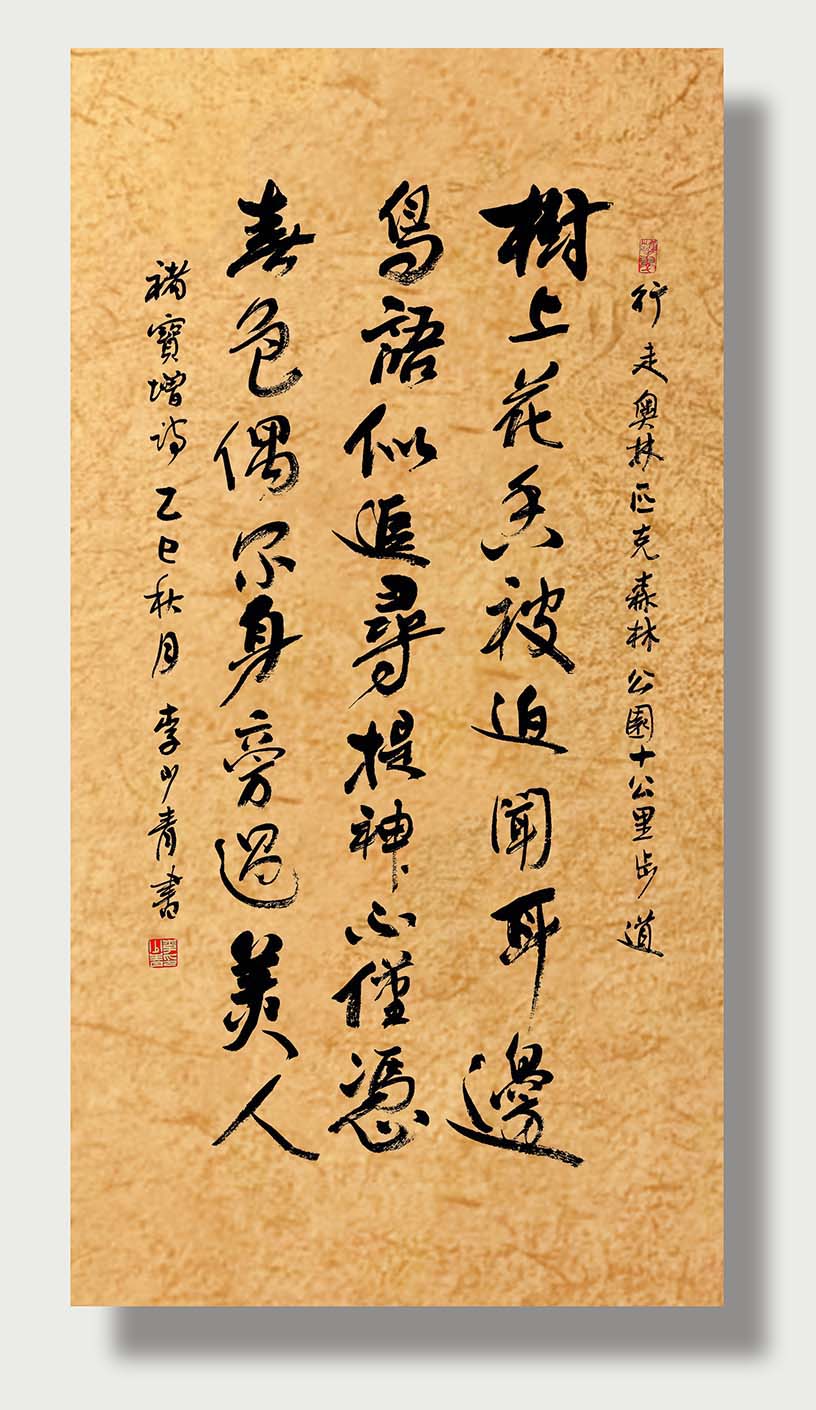 行走奧林匹克森林公園十公里步道
樹上花香被迫聞耳邊
鳥語似追尋提神心僅憑
春色偶尔身旁過美人
褚寶增詩乙巳秋月李山青書